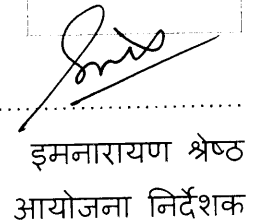 इमनारायण श्रेष्ठ
आयोजना निर्देशक